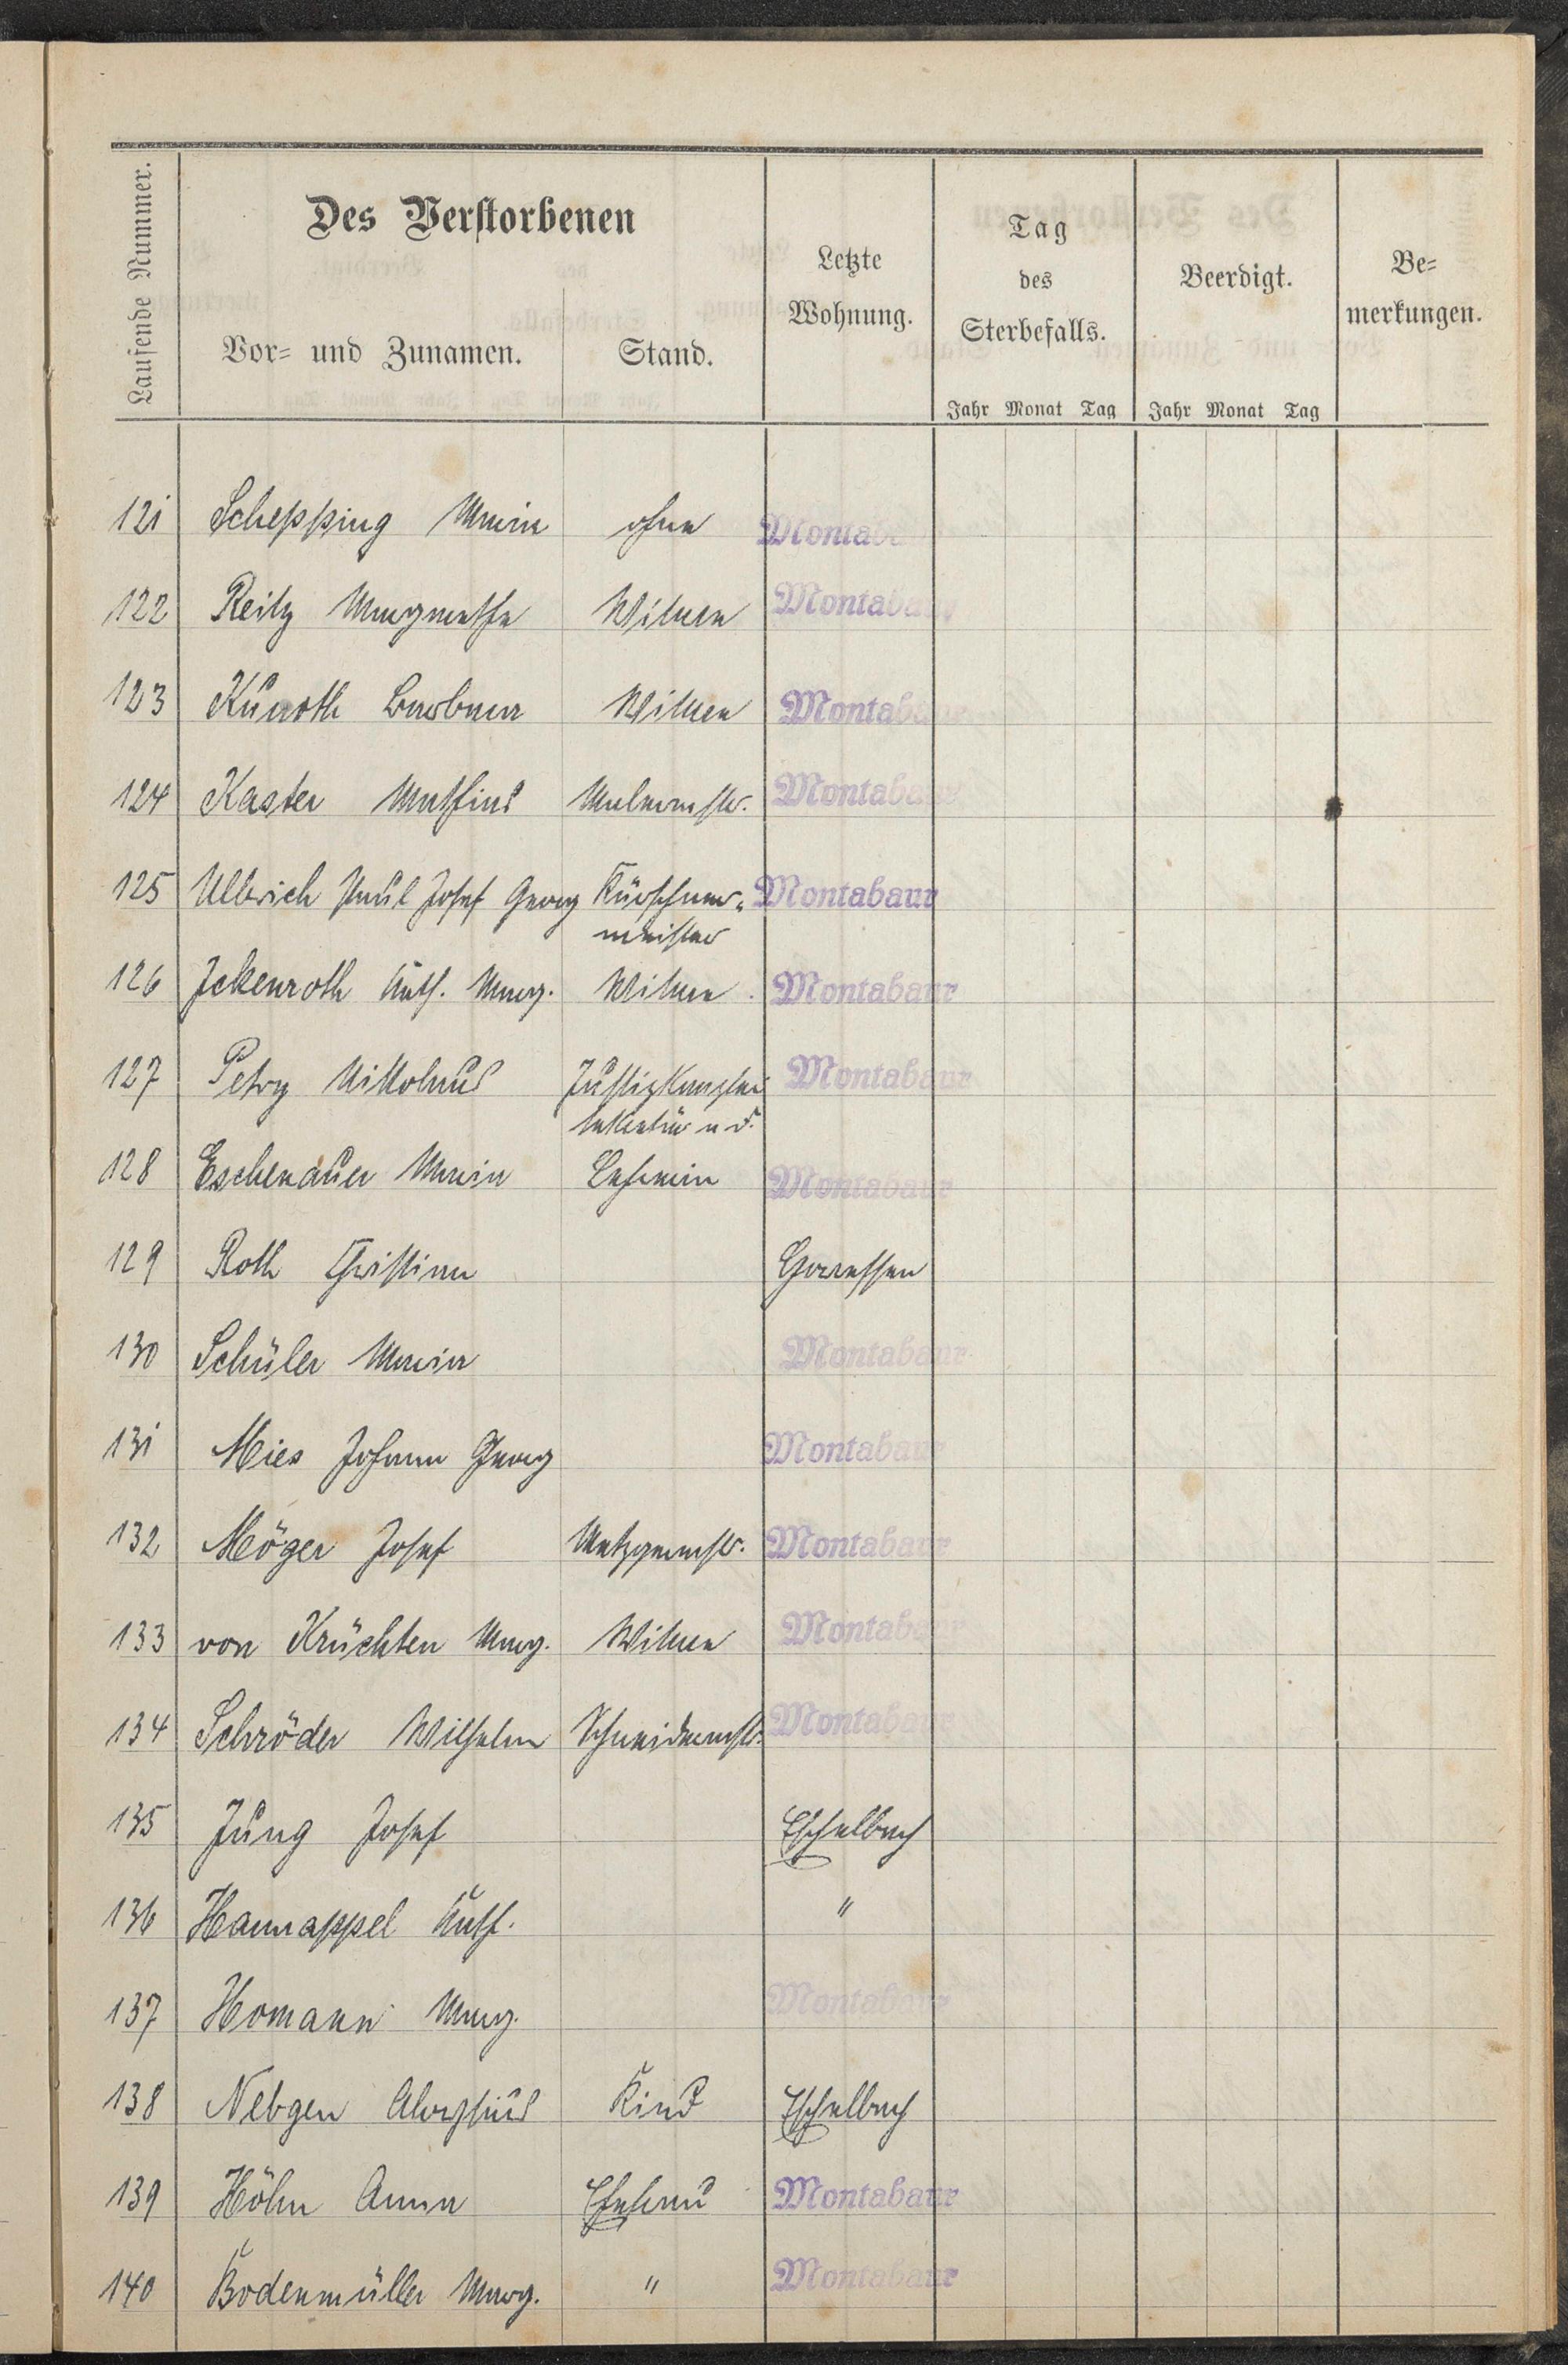 Laufende Nummer.
Des Verstorbenen
Vor= und Zunamen.
Stand.
Letzte
Wohnung.
Tag
des
Sterbefalls.
Beerdigt.
Be=
merkungen.
Jahr Monat Tag Jahr Monat Tag
121 Schepping Maria ohne Montabaur
122 Reitz Margarethe Witwe Montabaur
123 Kunoth Barbara Witwe Montabaur
124 Kaster Mathias Malermstr. Montabaur
125 Ullrich Paul Josef Georg Kürschner= Montabaur
meister
126 Ickenroth Kath. Marg. Witwe Montabaur
127 Petry Nikolaus Justizkanzlei Montabaur
sekretär a. D.
128 Eschenauer Maria Lehrerin Montabaur
129 Roth Christina
130 Schüler Maria Montabaur
131 Mies Johann Georg Montabaur
132 Möger Josef Metzgermstr. Montabaur
133 von Krüchten Marg. Witwe Montabaur
134 Schröder Wilhelm Schneidermstr. Montabaur
135 Jung Josef Eschelbach
136 Hannappel Kath. "
137 Homann Marg. Montabaur
138 Nebgen Aloysius Kind Eschelbach
139 Höhn Anna Ehefrau Montabaur
140 Bodenmüller Marg. " Montabaur